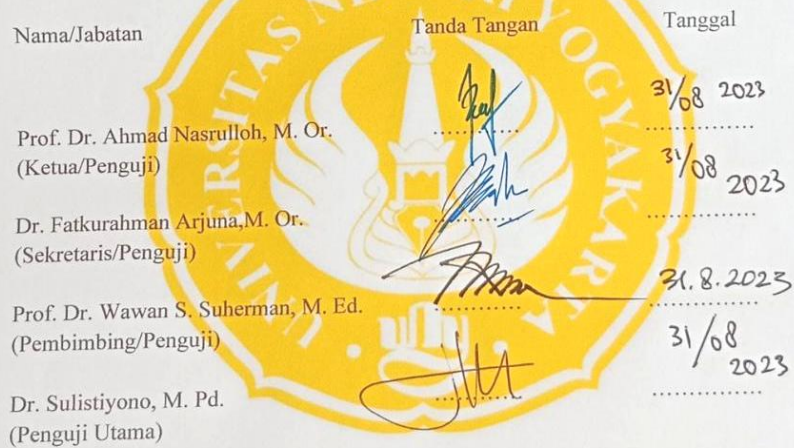 Nama/Jabatan Tanda Tangan Tanggal
31/08 2023
Prof. Dr. Ahmad Nasrulloh, M. Or. .................. ..................
(Ketua/Penguji) 31/08 2023
Dr. Fatkurahman Arjuna,M. Or. .................. ..................
(Sekretaris/Penguji)
31.8.2023
Prof. Dr. Wawan S. Suherman, M. Ed. .................. ..................
(Pembimbing/Penguji) 31/08 2023
Dr. Sulistiyono, M. Pd. .................. ..................
(Penguji Utama)
UNIVERSITAS NEGERI YOGYAKARTA